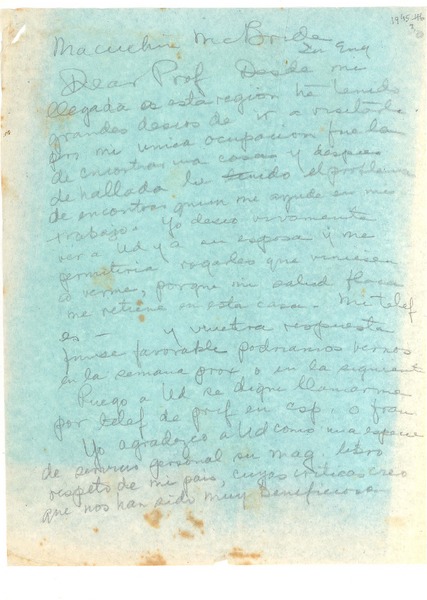 1945-46
Macuchin McBride
In Eng
Dear Prof Desde mi
llegada a esta región he tenido
grandes deseos de ir a visitarle
por mi única ocupación fue la
de encontrar una casa y después
de hallada he tenido el problema
de encontrar quien me ayude en mi
trabajo. Yo deseo vivamente
ver a Ud y a su esposa y me
permitiría rogarles que viniesen
a verme, porque mi salud flaca
me retiene en esta casa. Mi telef
es — y vuestra respuesta
fuese favorable podríamos vernos
en la semana prox. o en la siguiente
Ruego a Ud se digne llamarme
por telef de pref en esp. o fran
Yo agradezco a Ud como una especie
de servicio personal su mag. libro
respeto de mi país, cuyas críticas creo
que nos han sido muy beneficiosa